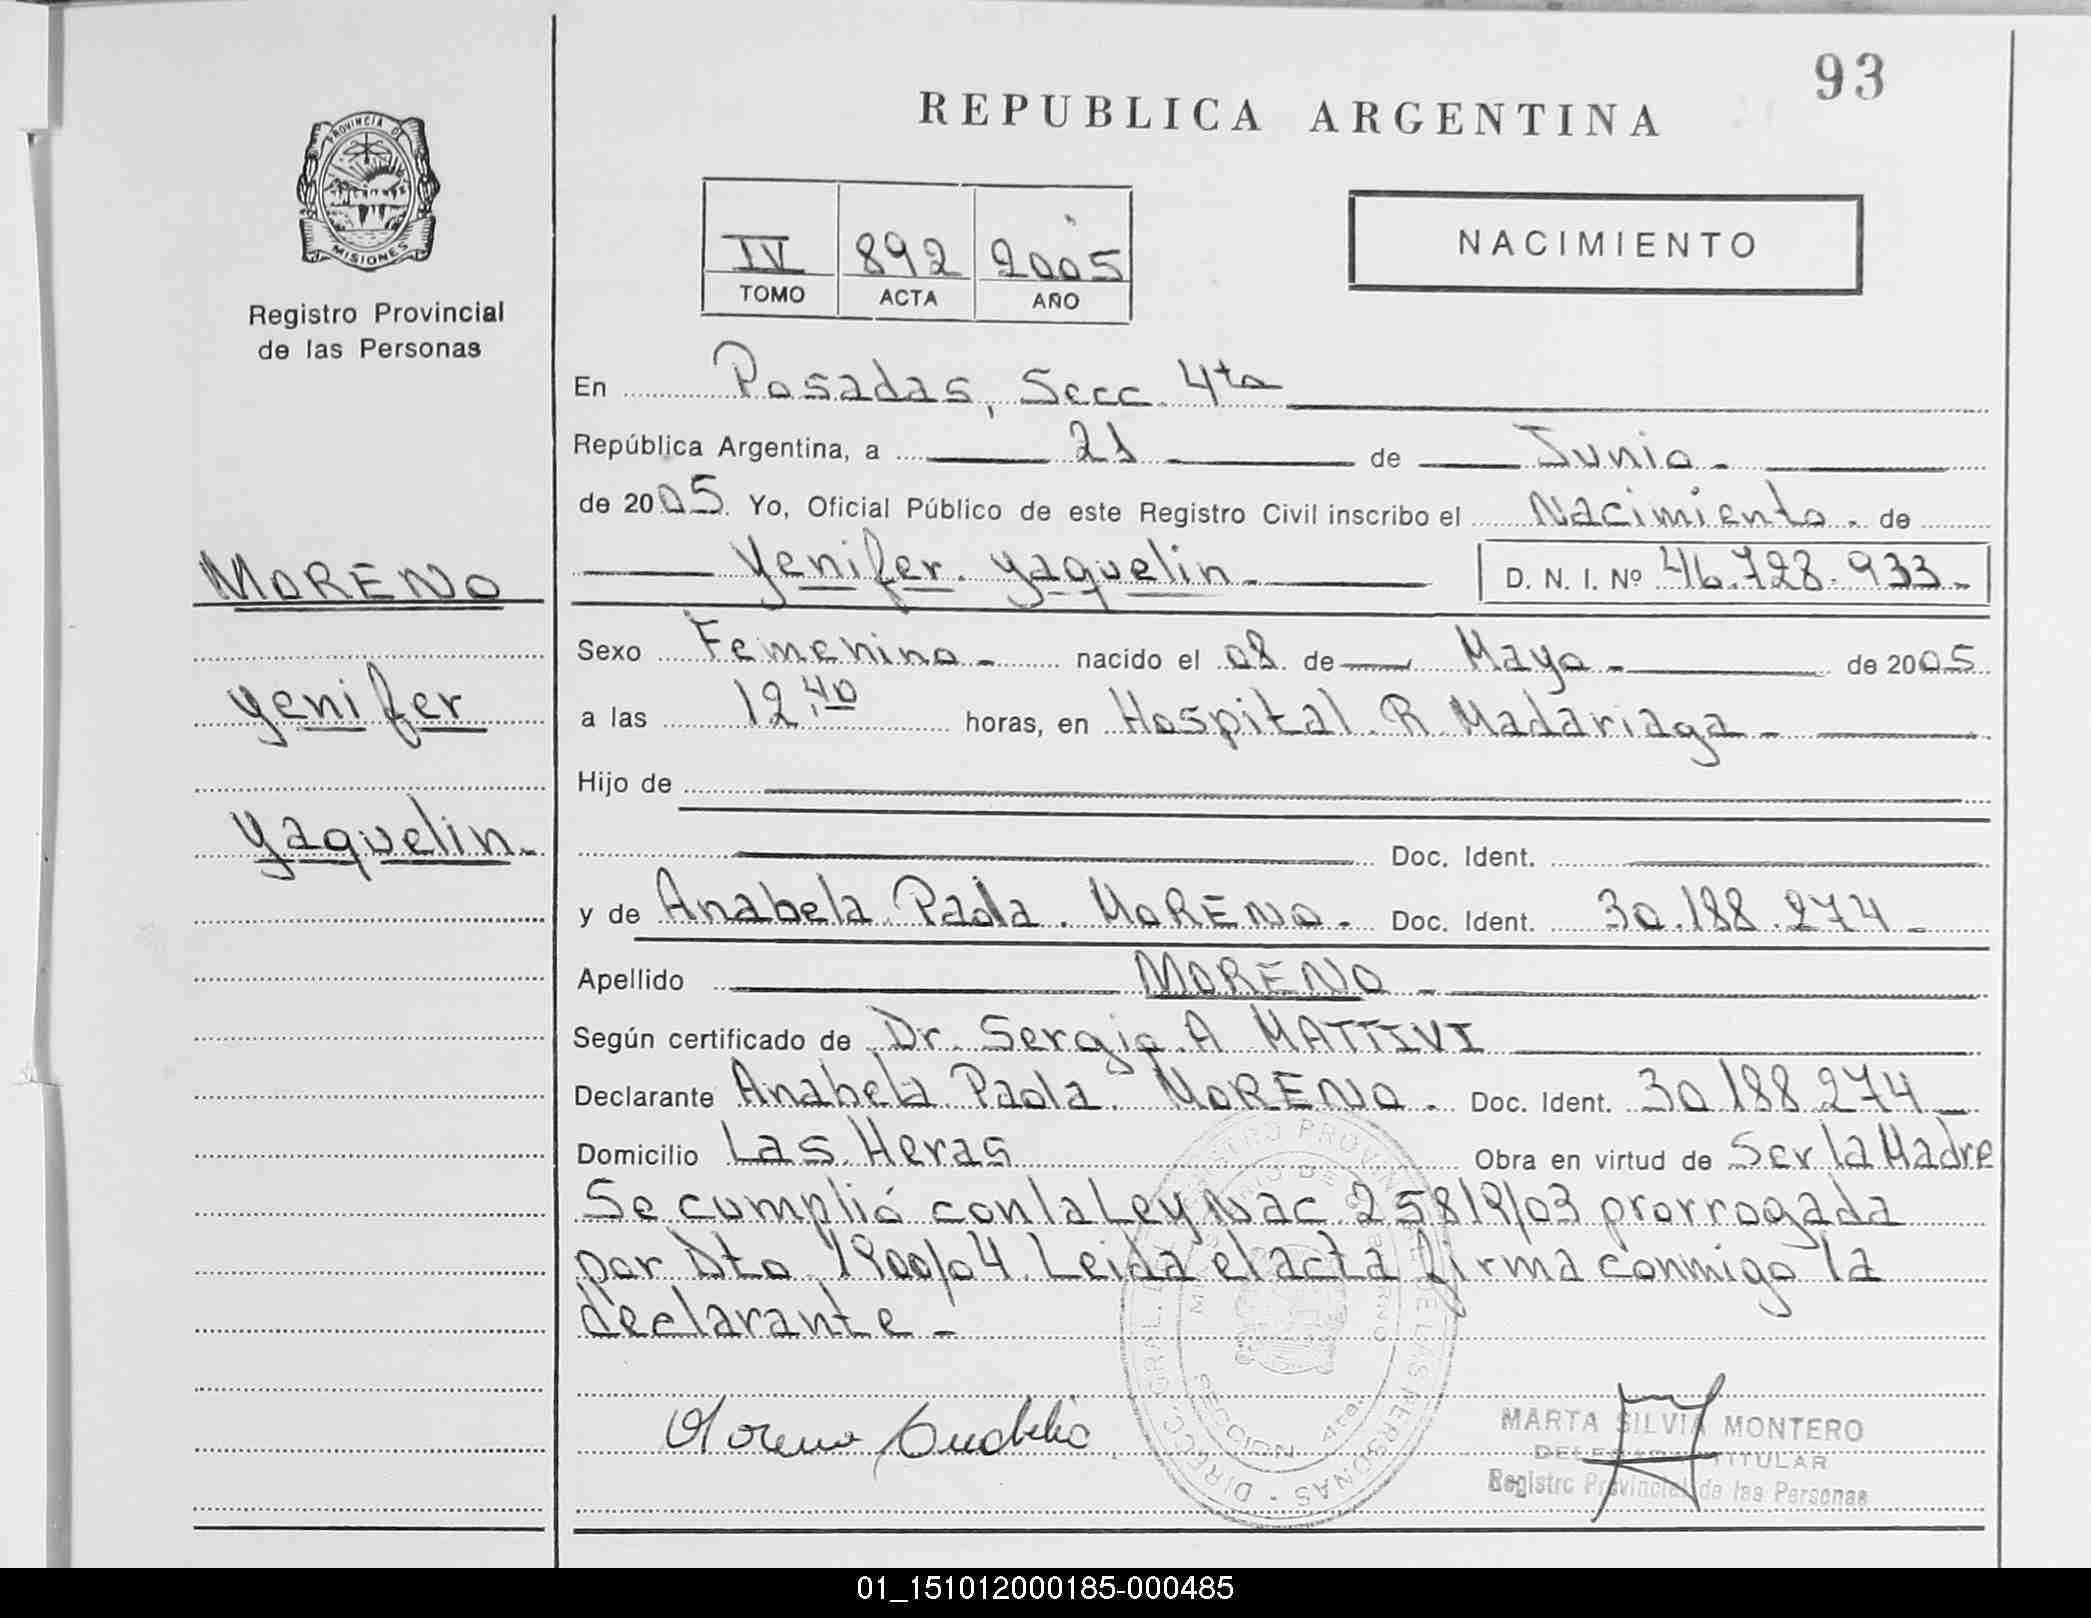 93
REPUBLICA ARGENTINA
PROVINCIA DE
MISIONES
Registro Provincial
de las Personas
IV 892 2005
TOMO ACTA AÑO
NACIMIENTO
En Posadas, Secc. 4ta
República Argentina, a 21 de Junio.
de 2005. Yo, Oficial Público de este Registro Civil inscribo el Nacimiento. de
Yenifer Yaquelin. D. N. I. Nº 46.728.933.
MORENO
Yenifer
Yaquelin.
Sexo Femenino nacido el 08 de Mayo de 2005
a las 12,40 horas, en Hospital R Madariaga
Hijo de
Doc. Ident.
y de Anabela Paola. MORENO. Doc. Ident. 30.188.274
Apellido MORENO
Según certificado de Dr. Sergio A MATTIVI
Declarante Anabela Paola MORENO. Doc. Ident. 30188274
Domicilio Las Heras Obra en virtud de Ser la Madre
Se cumplió con la Ley Nac 25819/03 prorrogada
por Dto 1900/04. Leida el acta firma conmigo la
declarante
Moreno
MARTA SILVIA MONTERO
DELEGADA TITULAR
Registro Provincial de las Personas
01_151012000185-000485